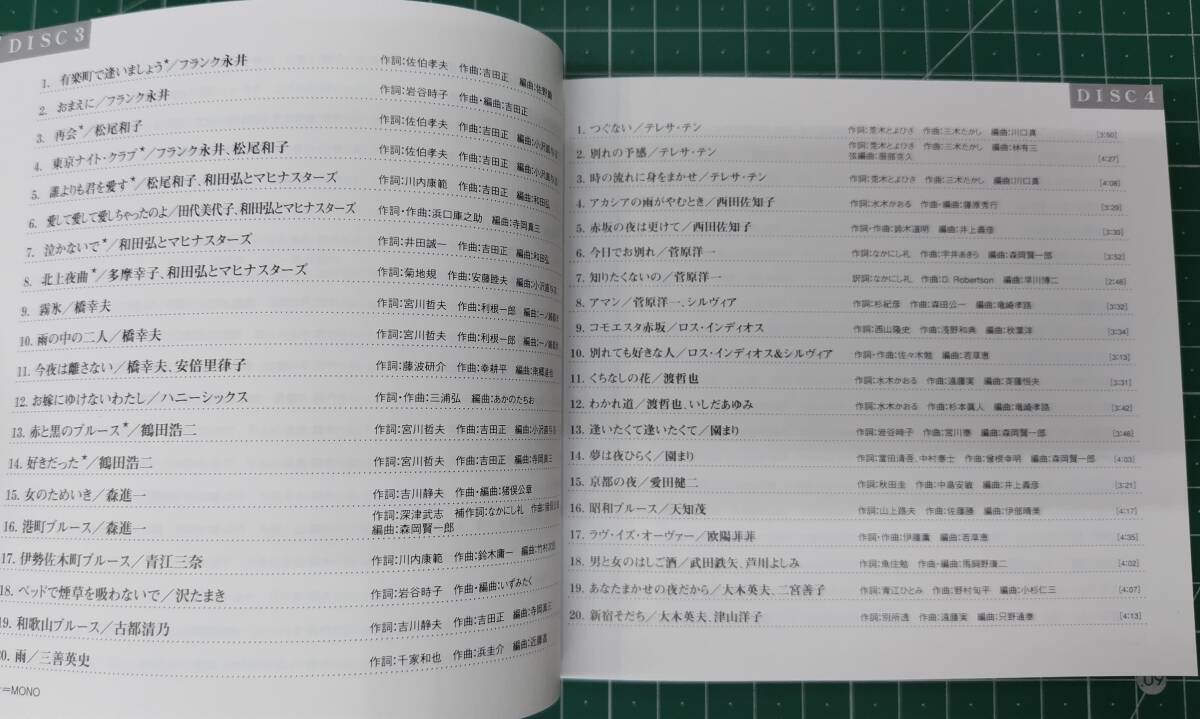 DISC 3
1. 有楽町で逢いましょう★／フランク永井 作詞：佐伯孝夫 作曲：吉田正 編曲：佐野鋤
2. おまえに／フランク永井 作詞：岩谷時子 作曲・編曲：吉田正
3. 再会★／松尾和子 作詞：佐伯孝夫 作曲：吉田正
4. 東京ナイト・クラブ★／フランク永井、松尾和子 作詞：佐伯孝夫 作曲：吉田正
5. 誰よりも君を愛す★／松尾和子、和田弘とマヒナスターズ 作詞：川内康範 作曲：吉田正 編曲：和田弘
6. 愛して愛して愛しちゃったのよ／田代美代子、和田弘とマヒナスターズ 作詞・作曲：浜口庫之助 編曲：寺岡真三
7. 泣かないで★／和田弘とマヒナスターズ 作詞：井田誠一 作曲：吉田正 編曲：和田弘
8. 北上夜曲★／多摩幸子、和田弘とマヒナスターズ 作詞：菊地規 作曲：安藤睦夫
9. 霧氷／橋幸夫 作詞：宮川哲夫 作曲：利根一郎
10. 雨の中の二人／橋幸夫 作詞：宮川哲夫 作曲：利根一郎
11. 今夜は離さない／橋幸夫、安倍里葎子 作詞：藤波研介 作曲：幸耕平
12. お嫁にゆけないわたし／ハニーシックス 作詞・作曲：三浦弘 編曲：あかのたちお
13. 赤と黒のブルース★／鶴田浩二 作詞：宮川哲夫 作曲：吉田正
14. 好きだった★／鶴田浩二 作詞：宮川哲夫 作曲：吉田正 編曲：寺岡真三
15. 女のためいき／森進一 作詞：吉川静夫 作曲・編曲：猪俣公章
16. 港町ブルース／森進一 作詞：深津武志 補作詞：なかにし礼
編曲：森岡賢一郎
17. 伊勢佐木町ブルース／青江三奈 作詞：川内康範 作曲：鈴木庸一
18. ベッドで煙草を吸わないで／沢たまき 作詞：岩谷時子 作曲・編曲：いずみたく
19. 和歌山ブルース／古都清乃 作詞：吉川静夫 作曲：吉田正 編曲：寺岡真三
20. 雨／三善英史 作詞：千家和也 作曲：浜圭介 編曲：近藤進
＝MONO
DISC 4
1. つぐない／テレサ・テン 作詞：荒木とよひさ 作曲：三木たかし 編曲：川口真 [3:50]
2. 別れの予感／テレサ・テン 作詞：荒木とよひさ 作曲：三木たかし 編曲：林有三
弦編曲：服部克久 [4:27]
3. 時の流れに身をまかせ／テレサ・テン 作詞：荒木とよひさ 作曲：三木たかし 編曲：川口真 [4:08]
4. アカシアの雨がやむとき／西田佐知子 作詞：水木かおる 作曲・編曲：藤原秀行 [3:29]
5. 赤坂の夜は更けて／西田佐知子 作詞・作曲：鈴木道明 編曲：井上義彦 [3:39]
6. 今日でお別れ／菅原洋一 作詞：なかにし礼 作曲：宇井あきら 編曲：森岡賢一郎 [3:52]
7. 知りたくないの／菅原洋一 訳詞：なかにし礼 作曲：D. Robertson 編曲：早川博二 [2:46]
8. アマン／菅原洋一、シルヴィア 作詞：杉紀彦 作曲：森田公一 編曲：竜崎孝路 [3:32]
9. コモエスタ赤坂／ロス・インディオス 作詞：西山隆史 作曲：浅野和典 編曲：秋葉洋 [3:34]
10. 別れても好きな人／ロス・インディオス&シルヴィア 作詞・作曲：佐々木勉 編曲：若草恵 [3:13]
11. くちなしの花／渡哲也 作詞：水木かおる 作曲：遠藤実 編曲：斉藤恒夫 [3:31]
12. わかれ道／渡哲也、いしだあゆみ 作詞：水木かおる 作曲：杉本眞人 編曲：竜崎孝路 [3:42]
13. 逢いたくて逢いたくて／園まり 作詞：岩谷時子 作曲：宮川泰 編曲：森岡賢一郎 [3:46]
14. 夢は夜ひらく／園まり 作詞：富田清吾、中村泰士 作曲：曽根幸明 編曲：森岡賢一郎 [4:03]
15. 京都の夜／愛田健二 作詞：秋田圭 作曲：中島安敏 編曲：井上義彦 [3:21]
16. 昭和ブルース／天知茂 作詞：山上路夫 作曲：佐藤勝 編曲：伊部晴美 [4:17]
17. ラヴ・イズ・オーヴァー／欧陽菲菲 作詞・作曲：伊藤薫 編曲：若草恵 [4:35]
18. 男と女のはしご酒／武田鉄矢、芦川よしみ 作詞：魚住勉 作曲・編曲：馬飼野康二 [4:02]
19. あなたまかせの夜だから／大木英夫、二宮善子 作詞：青江ひとみ 作曲：野村旬平 編曲：小杉仁三 [4:07]
20. 新宿そだち／大木英夫、津山洋子 作詞：別所透 作曲：遠藤実 編曲：只野通泰 [4:13]